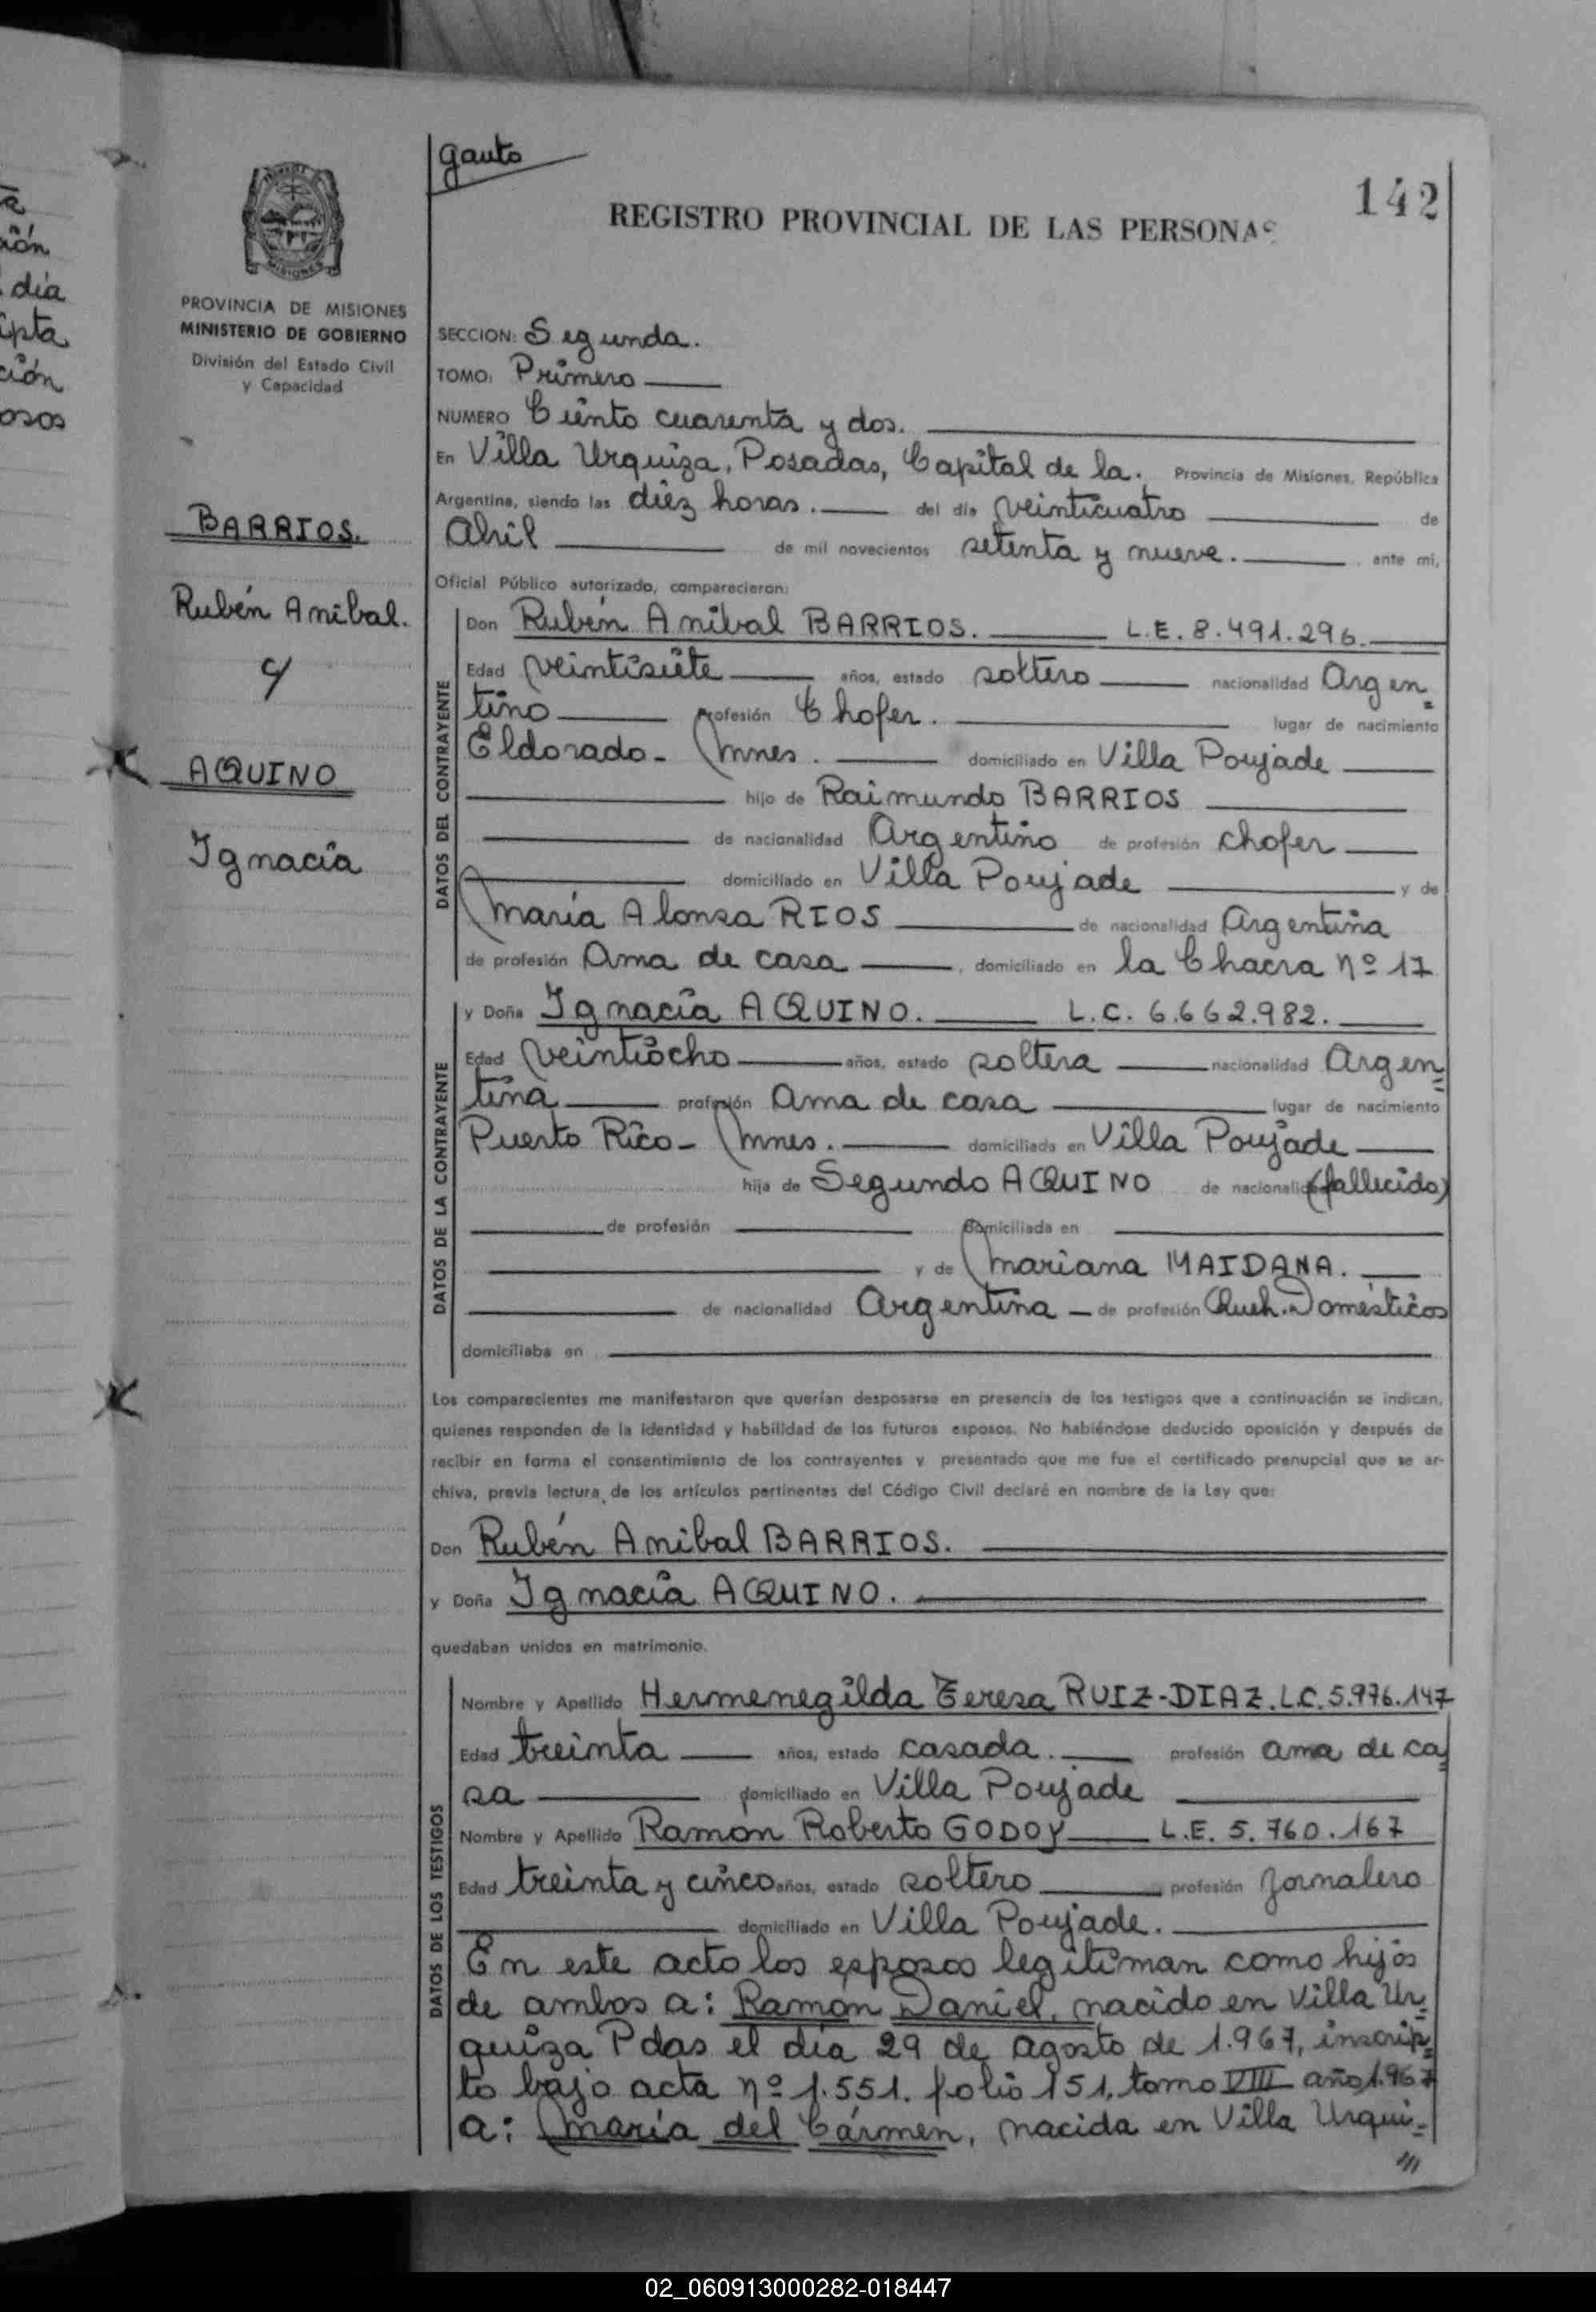 gauto
142
REGISTRO PROVINCIAL DE LAS PERSONAS
MISIONES
PROVINCIA DE MISIONES
MINISTERIO DE GOBIERNO
División del Estado Civil
y Capacidad
BARRIOS.
Rubén Anibal.
y
AQUINO
Ignacia
día
ipta
ción
osos
SECCION: Segunda.
TOMO: Primero
NUMERO Ciento cuarenta y dos.
En Villa Urquiza, Posadas, Capital de la. Provincia de Misiones, República
Argentina, siendo las diez horas. del día veinticuatro de
Abril de mil novecientos setenta y nueve. , ante mi,
Oficial Público autorizado, comparecieron:
DATOS DEL CONTRAYENTE
Don Rubén Anibal BARRIOS. L.E. 8.491.296.
Edad veintisiete años, estado soltero nacionalidad Argen=
tino profesión Chofer. lugar de nacimiento
Eldorado - Mnes. domiciliado en Villa Poujade
hijo de Raimundo BARRIOS
de nacionalidad Argentino de profesión chofer
domiciliado en Villa Poujade y de
Maria Alonsa RIOS de nacionalidad Argentina
de profesión Ama de casa , domiciliado en la Chacra nº 17
DATOS DE LA CONTRAYENTE
y Doña Ignacia AQUINO. L.C. 6.662.982.
Edad veintiocho años, estado soltera nacionalidad Argen=
tina profesión Ama de casa lugar de nacimiento
Puerto Rico - Mnes. domiciliada en Villa Poujade
hija de Segundo AQUINO de nacionalidad (fallecido)
de profesión domiciliada en
y de Mariana MAIDANA.
de nacionalidad Argentina - de profesión Queh. Domésticos
domiciliaba en
Los comparecientes me manifestaron que querían desposarse en presencia de los testigos que a continuación se indican,
quienes responden de la identidad y habilidad de los futuros esposos. No habiéndose deducido oposición y después de
recibir en forma el consentimiento de los contrayentes y presentado que me fue el certificado prenupcial que se ar-
chiva, previa lectura de los artículos pertinentes del Código Civil declaré en nombre de la Ley que:
Don Rubén Anibal BARRIOS.
y Doña Ignacia AQUINO.
quedaban unidos en matrimonio.
DATOS DE LOS TESTIGOS
Nombre y Apellido Hermenegilda Teresa RUIZ-DIAZ. L.C. 5.976.147
Edad treinta años, estado casada. profesión ama de ca=
sa domiciliado en Villa Poujade
Nombre y Apellido Ramon Roberto GODOY L.E. 5.760.167
Edad treinta y cinco años, estado soltero profesión Jornalero
domiciliado en Villa Poujade.
En este acto los esposos legitiman como hijos
de ambos a: Ramón Daniel, nacido en Villa Ur=
quiza Pdas el día 29 de agosto de 1.967, inscrip=
to bajo acta nº 1.551. folio 151, tomo VIII año 1.967
a: María del Cármen, nacida en Villa Urqui=
///
02_060913000282-018447